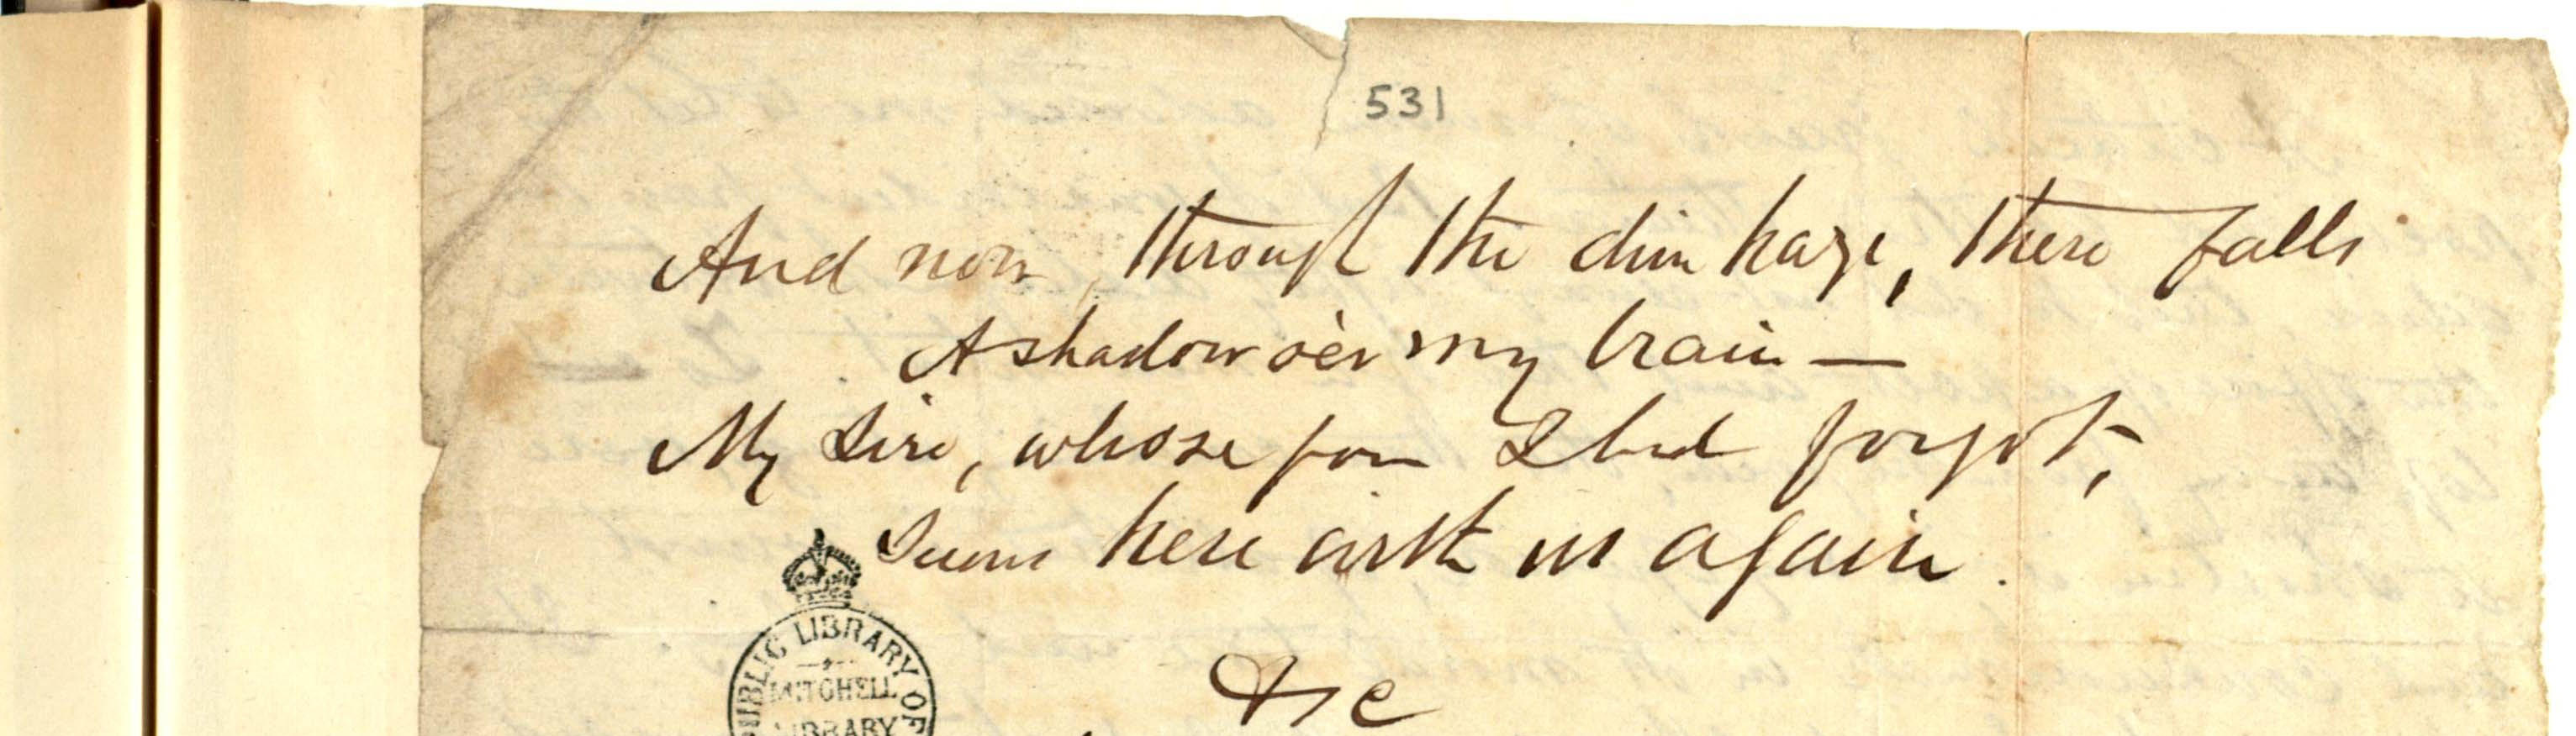 531
And now, through the dim haze, there falls
A shadow o'er my brain —
My Sire, whose form I had forgot,
Seems here with us again.
&c
PUBLIC LIBRARY OF
MITCHELL
LIBRARY